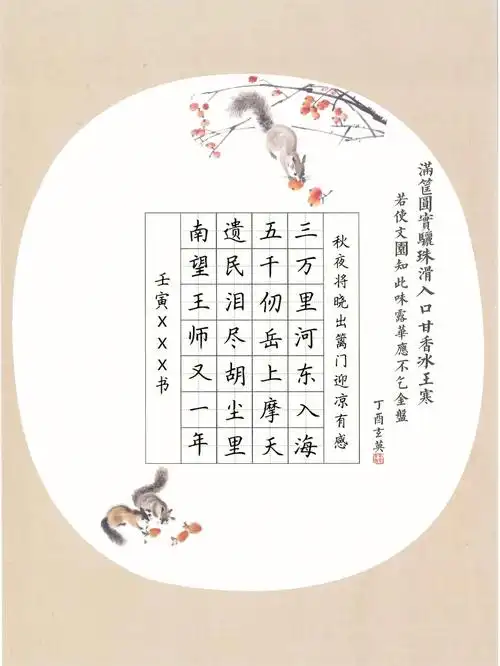 满筐圓實驪珠滑入口甘香冰玉寒
若使文園知此味露華應不乞金盤
丁酉玄英
秋夜将晓出篱门迎凉有感
三万里河东入海
五千仞岳上摩天
遗民泪尽胡尘里
南望王师又一年
壬寅XXX书